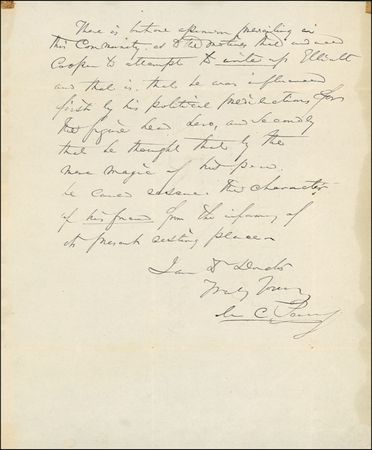 There is but one opinion prevailing in
this Community, as to the motives that induced
Cooper to attempt to write up Elliott
and that is. that he was influenced
first by his political predilections for
that figure head hero, and secondly
that he thought that by the
mere magic of his pen.
he could rescue the character
of his friend from the infamy of
its present resting place—
I am Dr Doctor
Truly Yours
M C. Perry